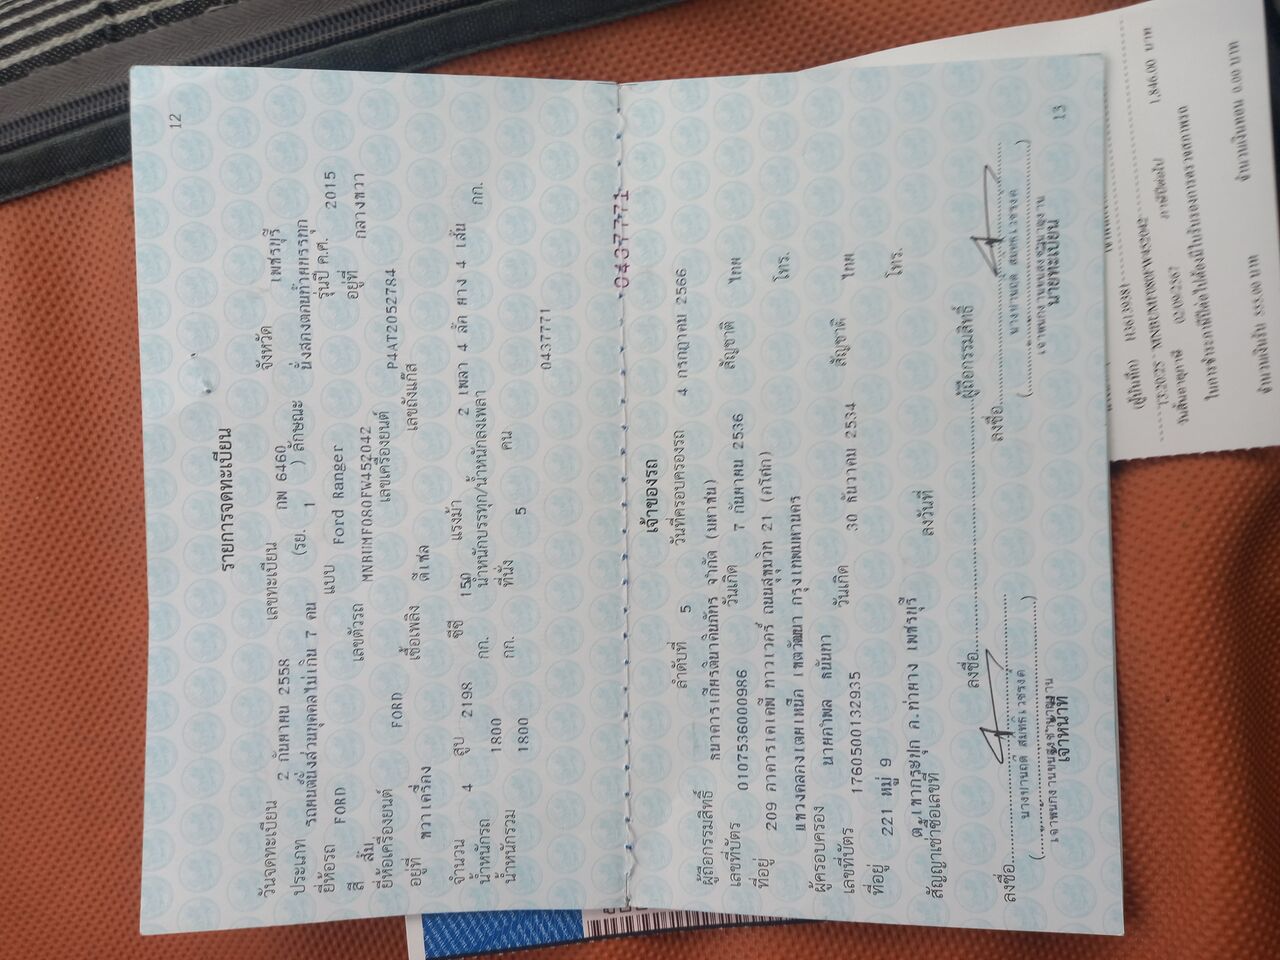 12
รายการจดทะเบียน
วันจดทะเบียน 2 กันยายน 2558 เลขทะเบียน กพ 6460 จังหวัด เพชรบุรี
ประเภท รถยนต์นั่งส่วนบุคคลไม่เกิน 7 คน (รย. 1 ) ลักษณะ นั่งสองตอนท้ายบรรทุก
ยี่ห้อรถ FORD แบบ Ford Ranger รุ่นปี ค.ศ. 2015
สี ส้ม เลขตัวรถ MNBUMF080FW452042 อยู่ที่ กลางขวา
ยี่ห้อเครื่องยนต์ FORD เลขเครื่องยนต์ P4AT2052784
อยู่ที่ ขวาเครื่อง เชื้อเพลิง ดีเซล เลขถังแก๊ส
จำนวน 4 สูบ 2198 ซีซี 150 แรงม้า 2 เพลา 4 ล้อ ยาง 4 เส้น
น้ำหนักรถ 1800 กก. น้ำหนักบรรทุก/น้ำหนักลงเพลา กก.
น้ำหนักรวม 1800 กก. ที่นั่ง 5 คน
0437771
0437771
เจ้าของรถ
ลำดับที่ 5 วันที่ครอบครองรถ 4 กรกฎาคม 2566
ผู้ถือกรรมสิทธิ์ ธนาคารเกียรตินาคินภัทร จำกัด (มหาชน)
เลขที่บัตร 0107536000986 วันเกิด 7 กันยายน 2536 สัญชาติ ไทย
ที่อยู่ 209 อาคารเคเคพี ทาวเวอร์ ถนนสุขุมวิท 21 (อโศก) โทร.
แขวงคลองเตยเหนือ เขตวัฒนา กรุงเทพมหานคร
ผู้ครอบครอง นายอำพล
เลขที่บัตร 1760500132935 วันเกิด 30 ธันวาคม 2534 สัญชาติ ไทย
ที่อยู่ 221 หมู่ 9 โทร.
ต.เขากระปุก อ.ท่ายาง เพชรบุรี
สัญญาเช่าซื้อเลขที่ ลงวันที่
ลงชื่อ ผู้ถือกรรมสิทธิ์
ลงชื่อ ลงชื่อ
เจ้าพนักงานขนส่งชำนาญงาน เจ้าพนักงานขนส่งชำนาญงาน
เจ้าหน้าที่ นายทะเบียน
13
(ผู้บันทึก)
13:20:25 - MNBUMF080FW452042 1,846.00 บาท
วันสิ้นอายุภาษี 02/09/2567 ภาษีปีต่อไป
ในการชำระภาษีปีต่อไปต้องมีใบรับรองการตรวจสภาพรถ
จำนวนเงินรับ 555.00 บาท จำนวนเงินทอน 0.00 บาท